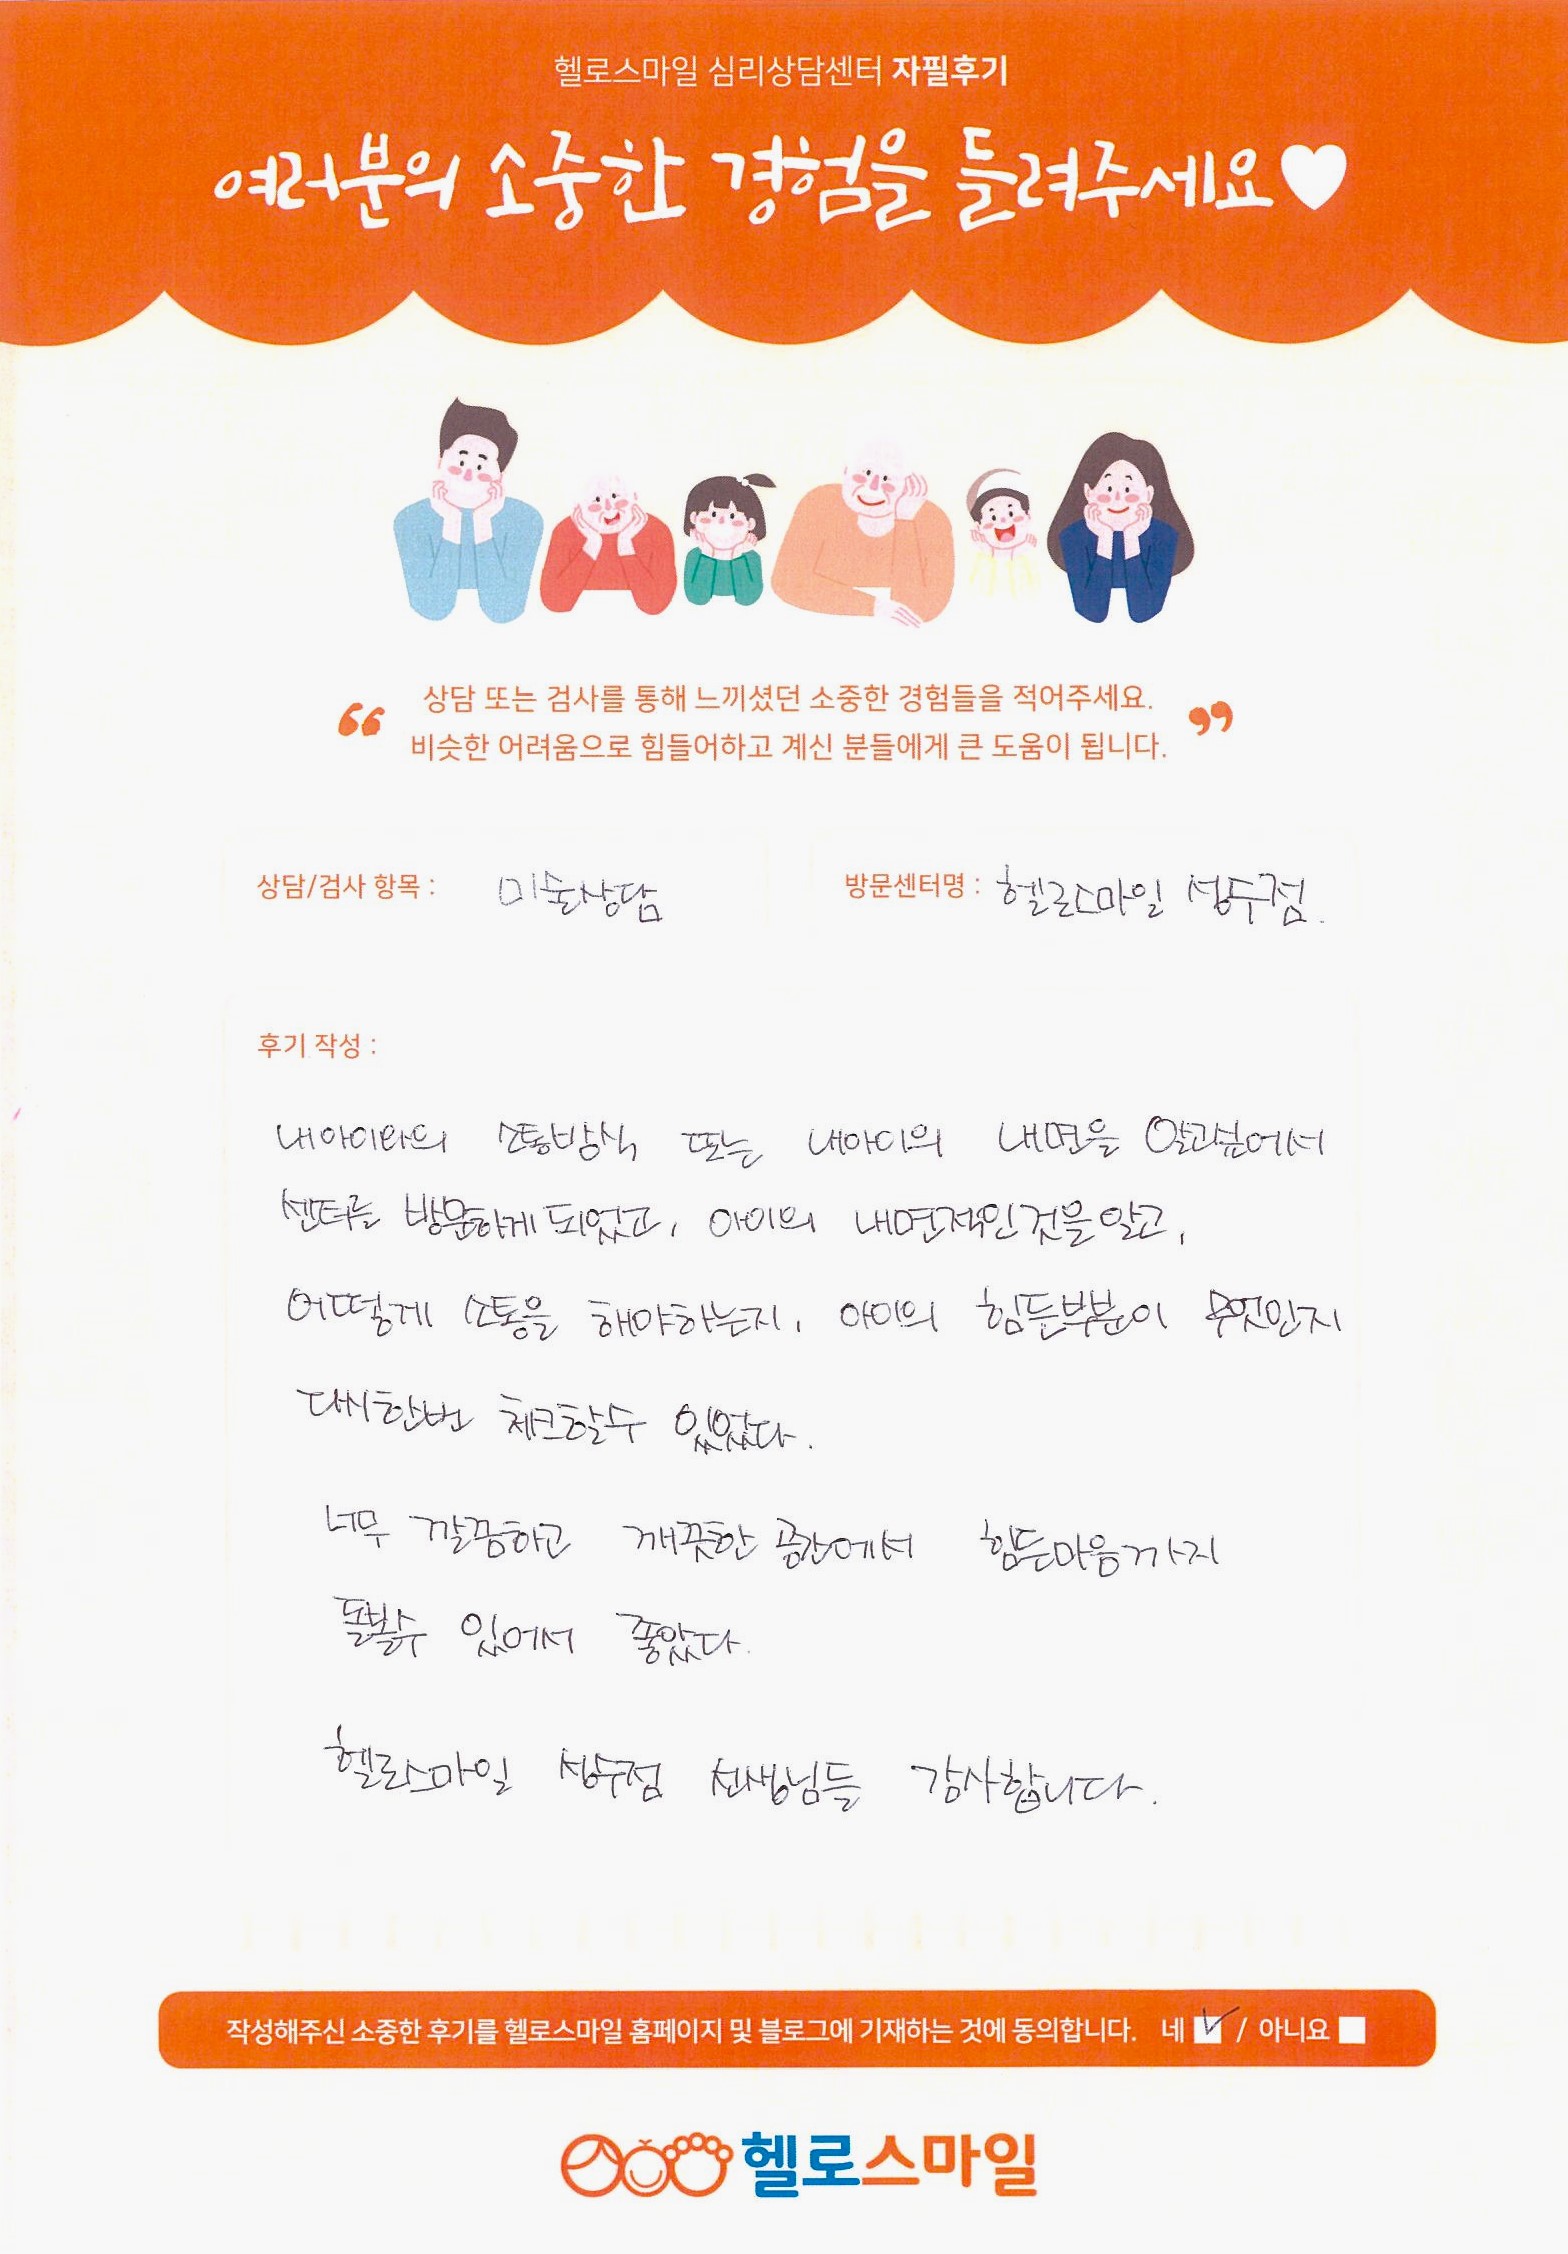 헬로스마일 심리상담센터 자필후기
여러분의 소중한 경험을 들려주세요♥
“ 상담 또는 검사를 통해 느끼셨던 소중한 경험들을 적어주세요. ”
비슷한 어려움으로 힘들어하고 계신 분들에게 큰 도움이 됩니다.
상담/검사 항목 : 미술상담
방문센터명 : 헬로스마일 성수점.
후기 작성 :
내아이와의 소통방식 또는 내아이의 내면을 알고싶어서
센터를 방문하게 되었고, 아이의 내면적인것을알고,
어떻게 소통을 해야하는지, 아이의 힘든부분이 무엇인지
다시한번 체크할수 있었다.
너무 깔끔하고 깨끗한 공간에서 힘든마음까지
돌볼수 있어서 좋았다.
헬로스마일 성수점 선생님들 감사합니다.
작성해주신 소중한 후기를 헬로스마일 홈페이지 및 블로그에 기재하는 것에 동의합니다. 네 ☑ / 아니요 ☐
헬로스마일